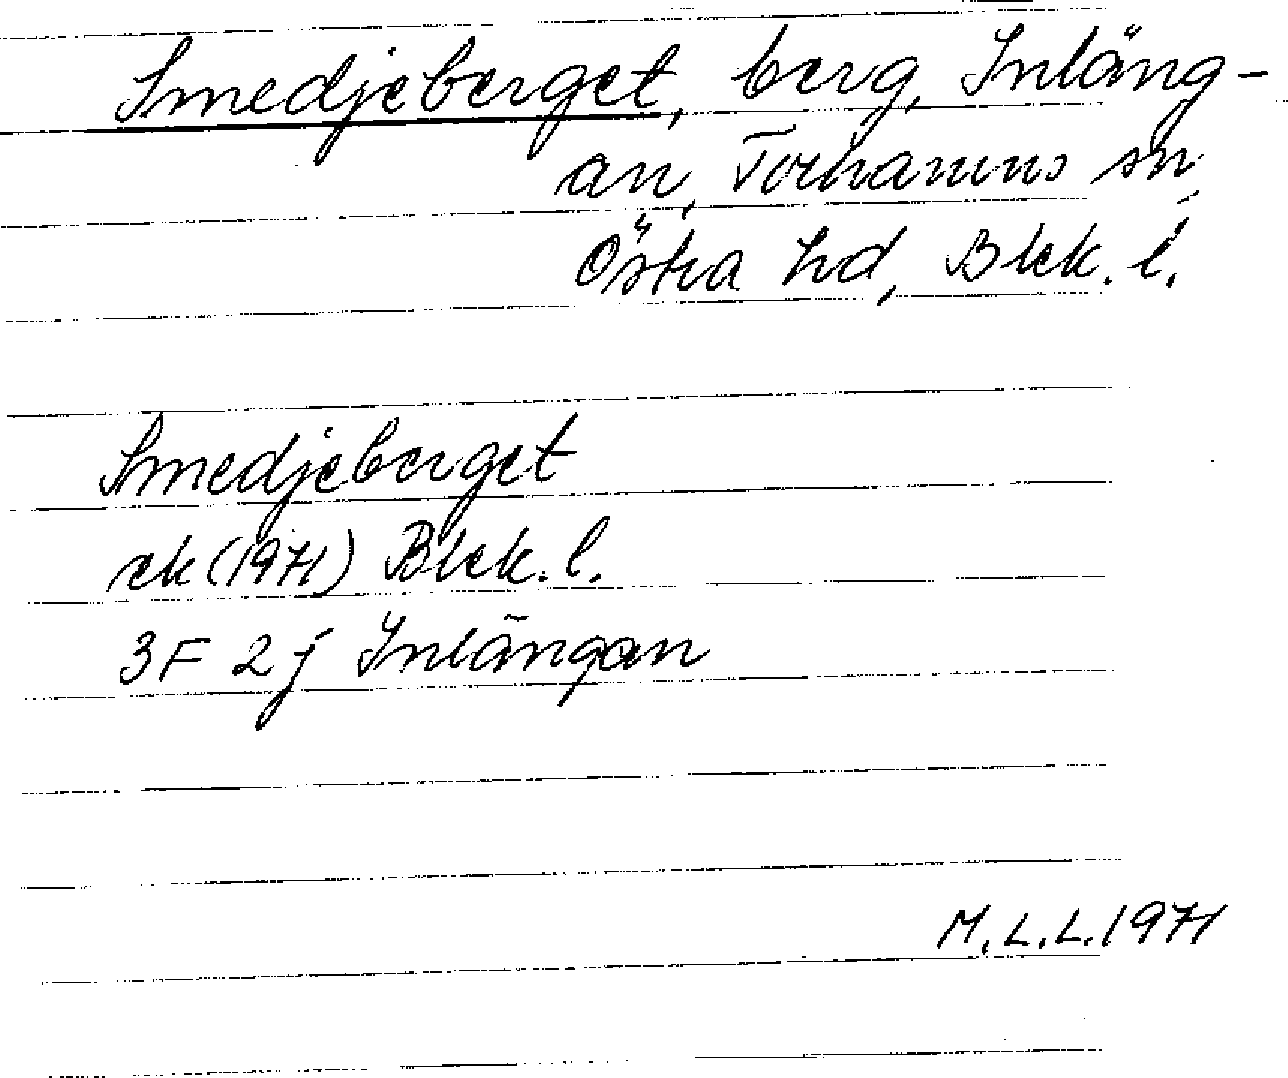 Smedjeberget, berg, Inläng-
an, Torhamns sn,
Östra hd, Blek. l.
Smedjeberget
ek (1971) Blek. l.
3F 2j Inlängan
M.L.L. 1971